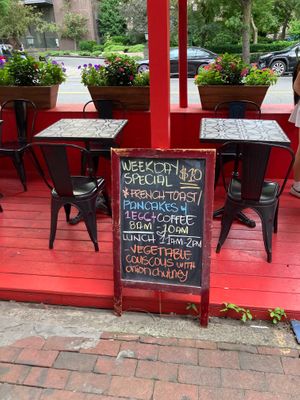 WEEKDAY $10
SPECIAL
*FRENCH TOAST/
PANCAKES 4
1 EGG + COFFEE
8AM - 10AM
LUNCH 11AM-2PM
- VEGETABLE
COUSCOUS WITH
onion chutney